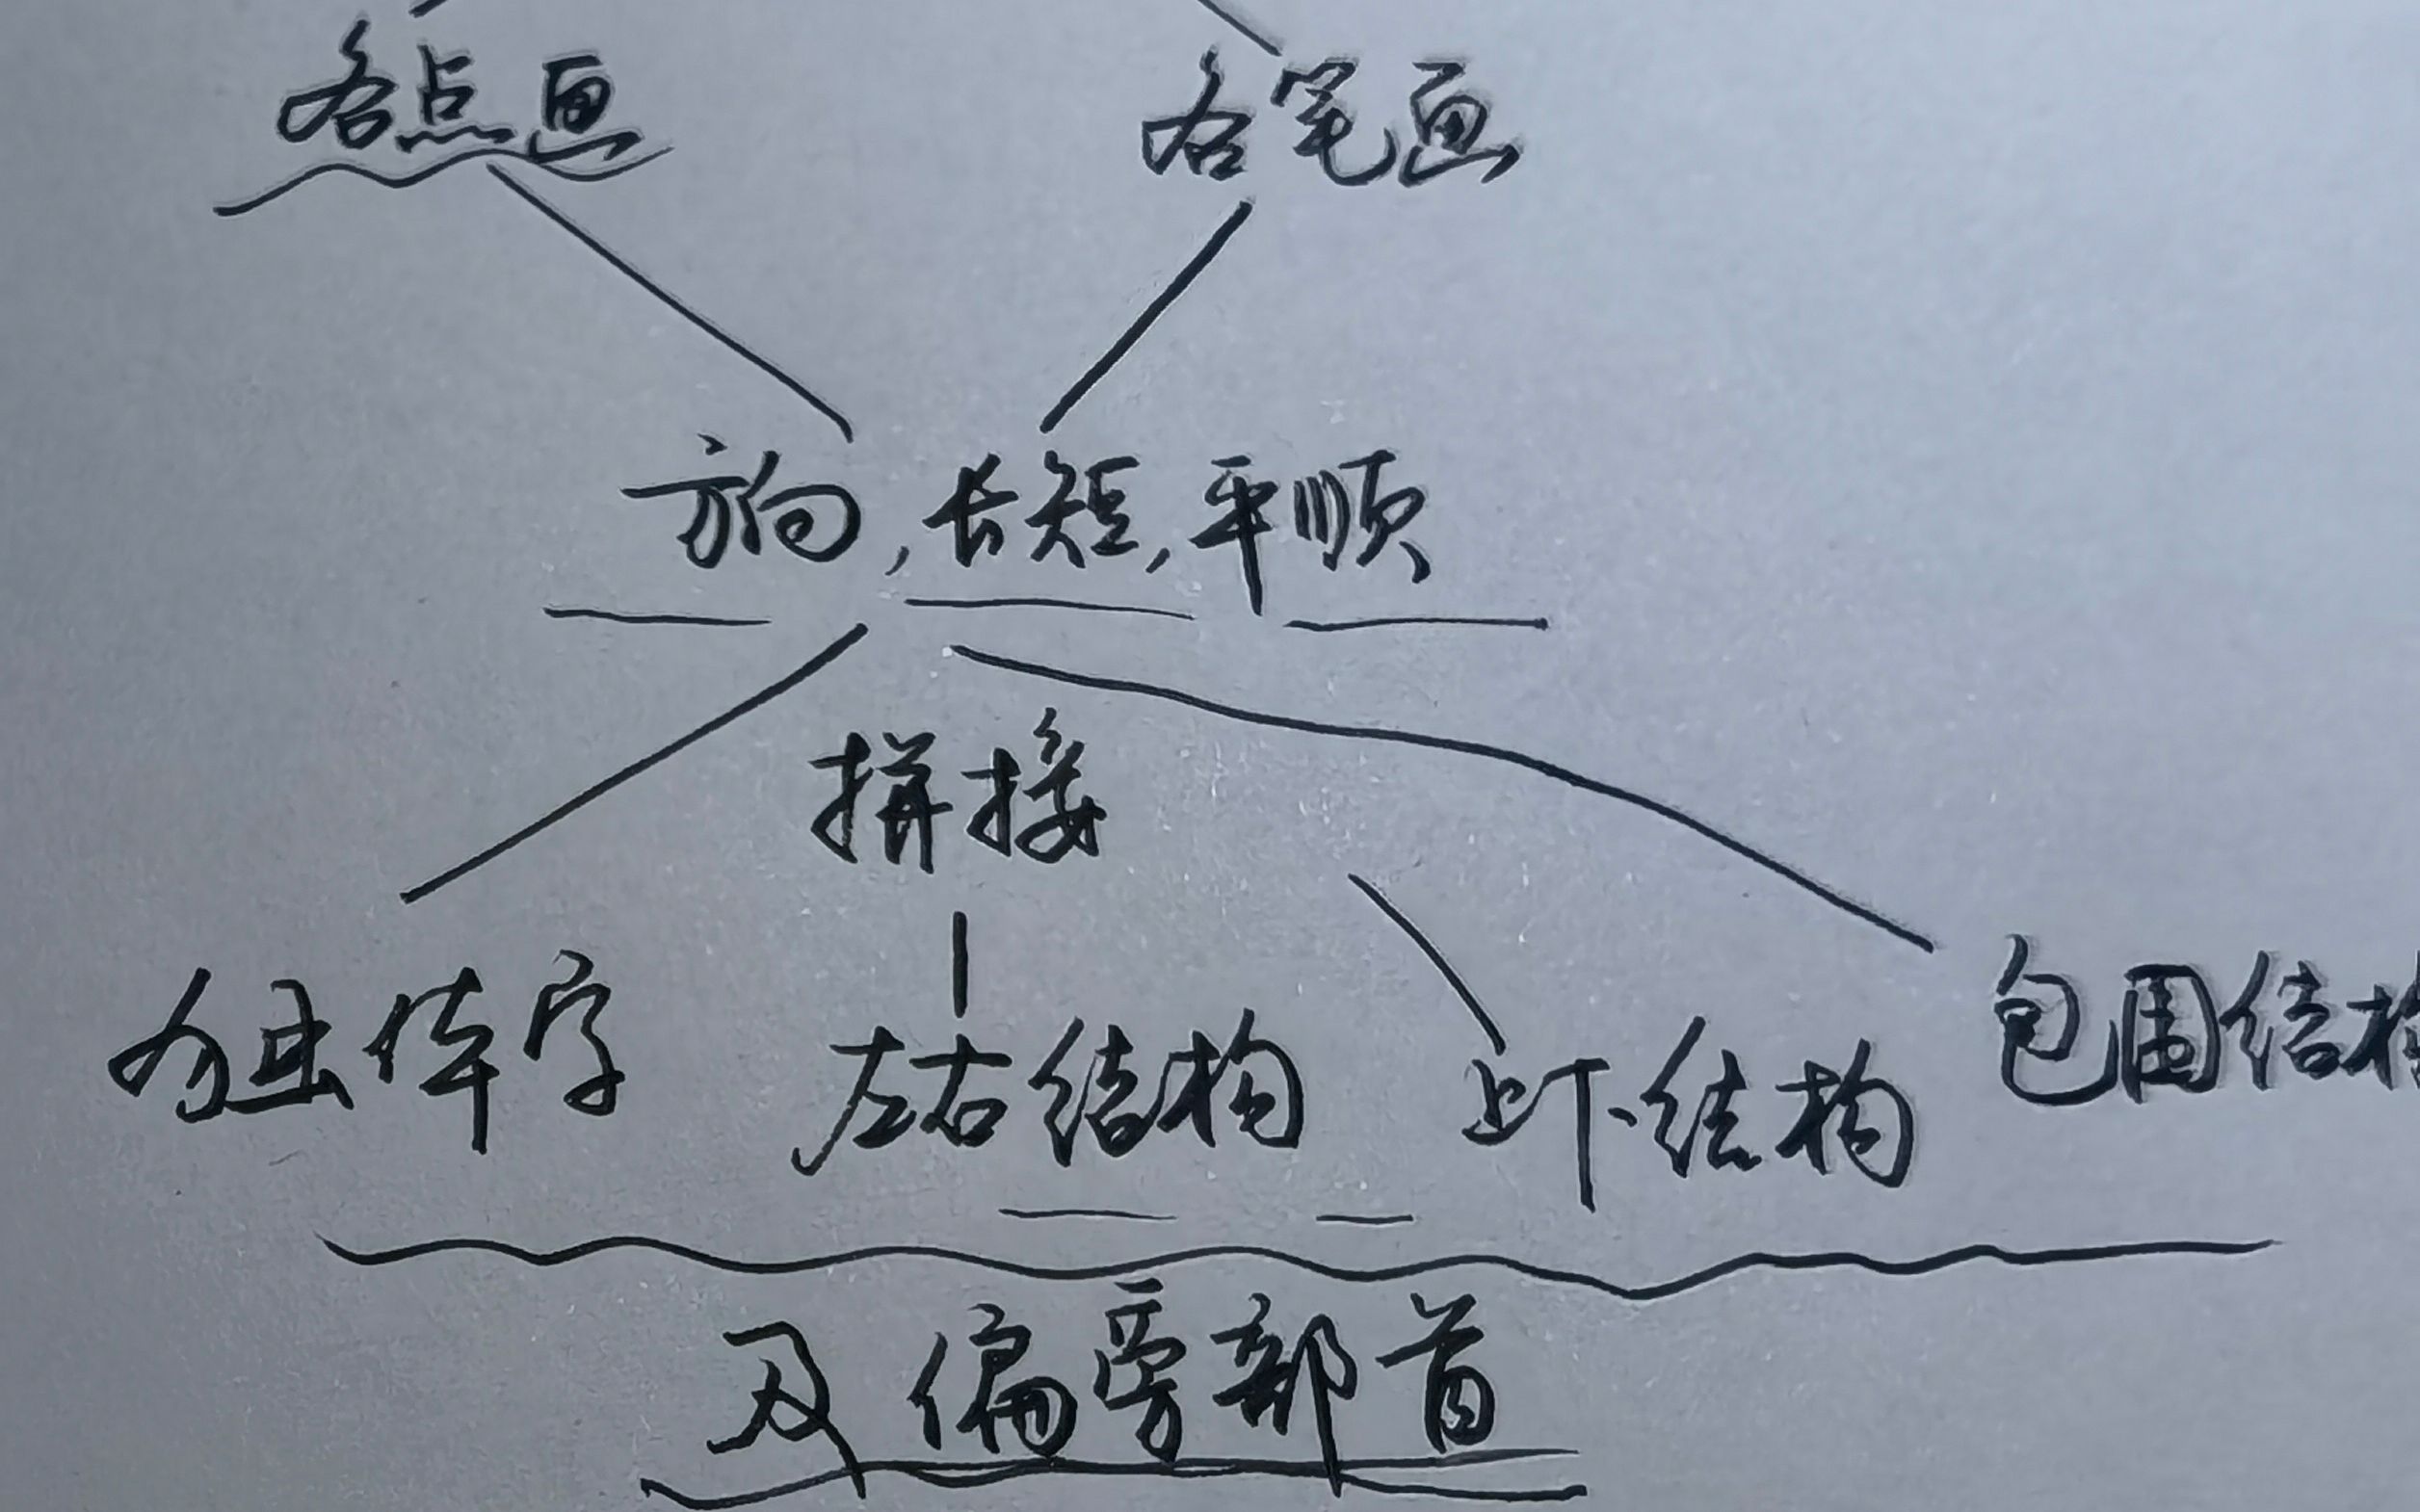 各点画 各笔画
方向,长短,平顺
拼接
独体字 左右结构 上下结构 包围结构
及偏旁部首